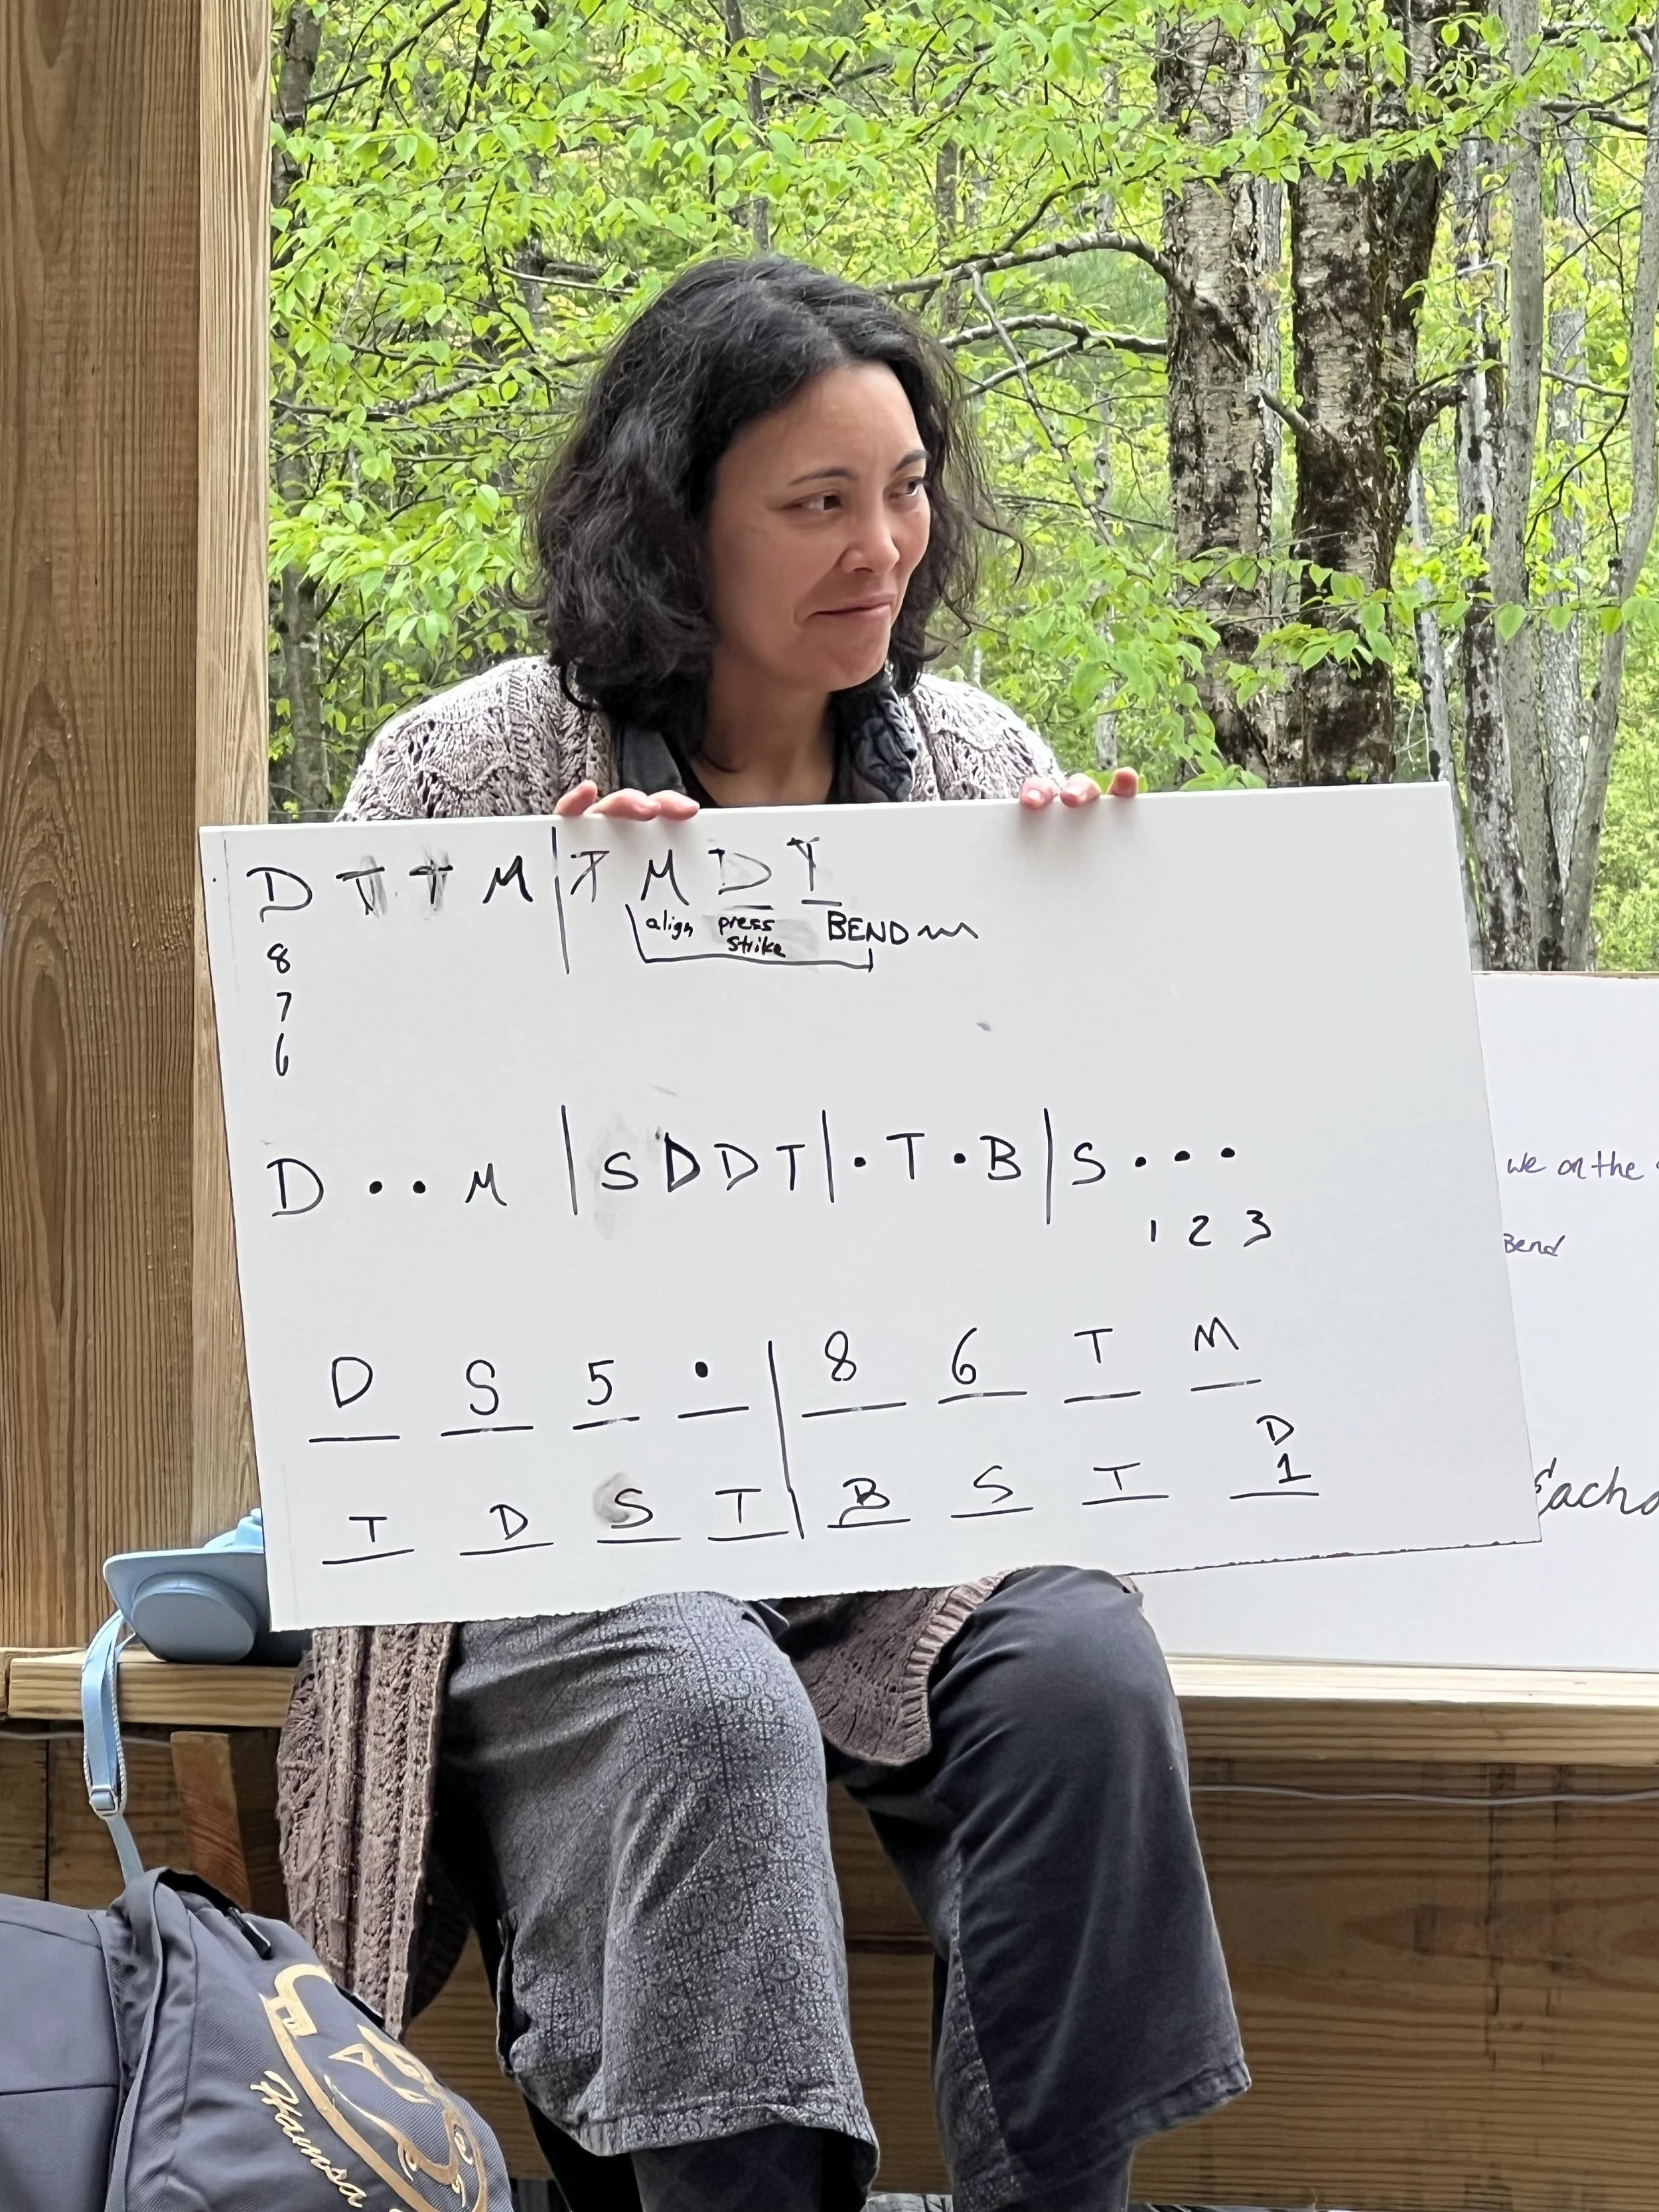 D T T M | T M D T
align press BEND
strike
8
7
6
D • • M | S D D T | • T • B | S • • •
1 2 3
D S 5 • | 8 6 T M
D
T D S T | B S T 1
we on the
Bend
Each
Hamsa